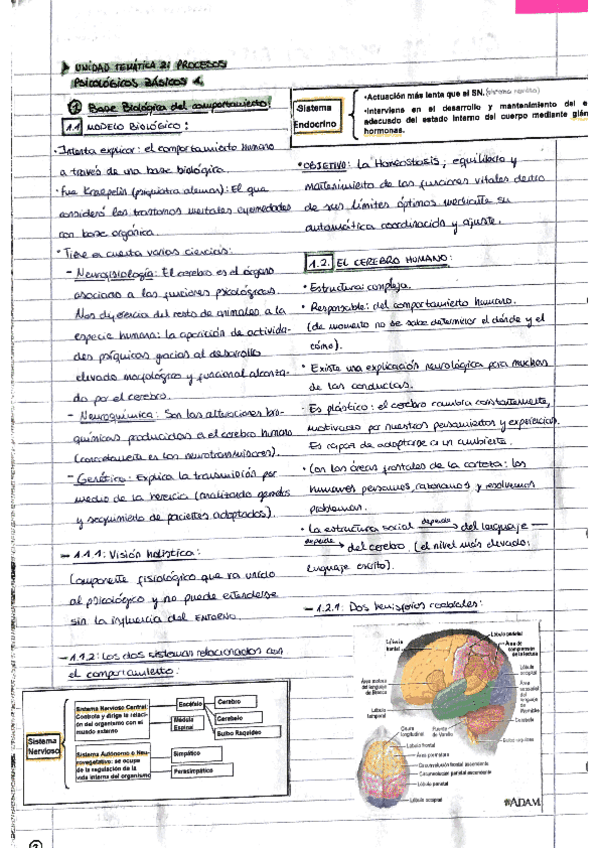 UNIDAD TEMÁTICA 2: PROCESOS
PSICOLÓGICOS BÁSICOS 1.
1 Base Biológica del comportamiento:
1.1 MODELO BIOLÓGICO:
• Intenta explicar: el comportamiento humano
a través de una base biológica.
• Fue Kraepelin (psiquiatra alemán): El que
consideró los trastornos mentales enfermedades
con base orgánica.
• Tiene en cuenta varias ciencias:
- Neurofisiología: El cerebro es el órgano
asociado a las funciones psicológicas.
Nos diferencia del resto de animales a la
especie humana: la aparición de activida-
des psíquicas gracias al desarrollo
elevado morfológico y funcional alcanza-
do por el cerebro.
- Neuroquímica: Son las alteraciones bio-
químicas producidas en el cerebro humano
(concretamente en los neurotransmisores).
- Genética: Explica la transmisión por
medio de la herencia (analizando genes
y seguimiento de pacientes adoptados).
- 1.1.1: Visión holística:
Componente fisiológico que va unido
al psicológico y no puede entenderse
sin la influencia del ENTORNO.
- 1.1.2: Los dos sistemas relacionados con
el comportamiento:
Sistema
Nervioso
Sistema Nervioso Central:
Controla y dirige la relaci-
ón del organismo con el
mundo externo
Encéfalo
Cerebro
Cerebelo
Bulbo Raquídeo
Médula
Espinal
Sistema Autónomo o Neu-
rovegetativo: se ocupa
de la regulación de la
vida interna del organismo
Simpático
Parasimpático
Sistema
Endocrino
•Actuación más lenta que el SN.
•Interviene en el desarrollo y mantenimiento del
adecuado del estado interno del cuerpo mediante
hormonas.
• OBJETIVO: La Homeostasis; equilibrio y
mantenimiento de las funciones vitales dentro
de sus límites óptimos mediante su
automática coordinación y ajuste.
1.2. EL CEREBRO HUMANO:
• Estructura: compleja.
• Responsable: del comportamiento humano.
(de momento no se sabe determinar el dónde y el
cómo).
• Existe una explicación neurológica para muchas
de las conductas.
• Es plástico: el cerebro cambia constantemente,
motivado por nuestros pensamientos y experiencias.
Es capaz de adaptarse a un ambiente.
• Con las áreas frontales de la corteza: los
humanos pensamos, razonamos y resolvemos
problemas.
• La estructura social depende del lenguaje
depende del cerebro. (el nivel más elevado:
lenguaje escrito).
- 1.2.1: Dos hemisferios cerebrales:
Lóbulo
frontal
Lóbulo parietal
Área de
comprensión
de la lectura
Lóbulo
occipital
Área motora
del lenguaje
de Broca
Área
sensorial
del
lenguaje
de Wernicke
Lóbulo
temporal
Cerebelo
Puente
de Varolio
Bulbo raquídeo
Cisura
longitudinal
Lóbulo frontal
Área premotora
Circunvolución frontal ascendente
Circunvolución parietal ascendente
Lóbulo parietal
Lóbulo occipital
ADAM